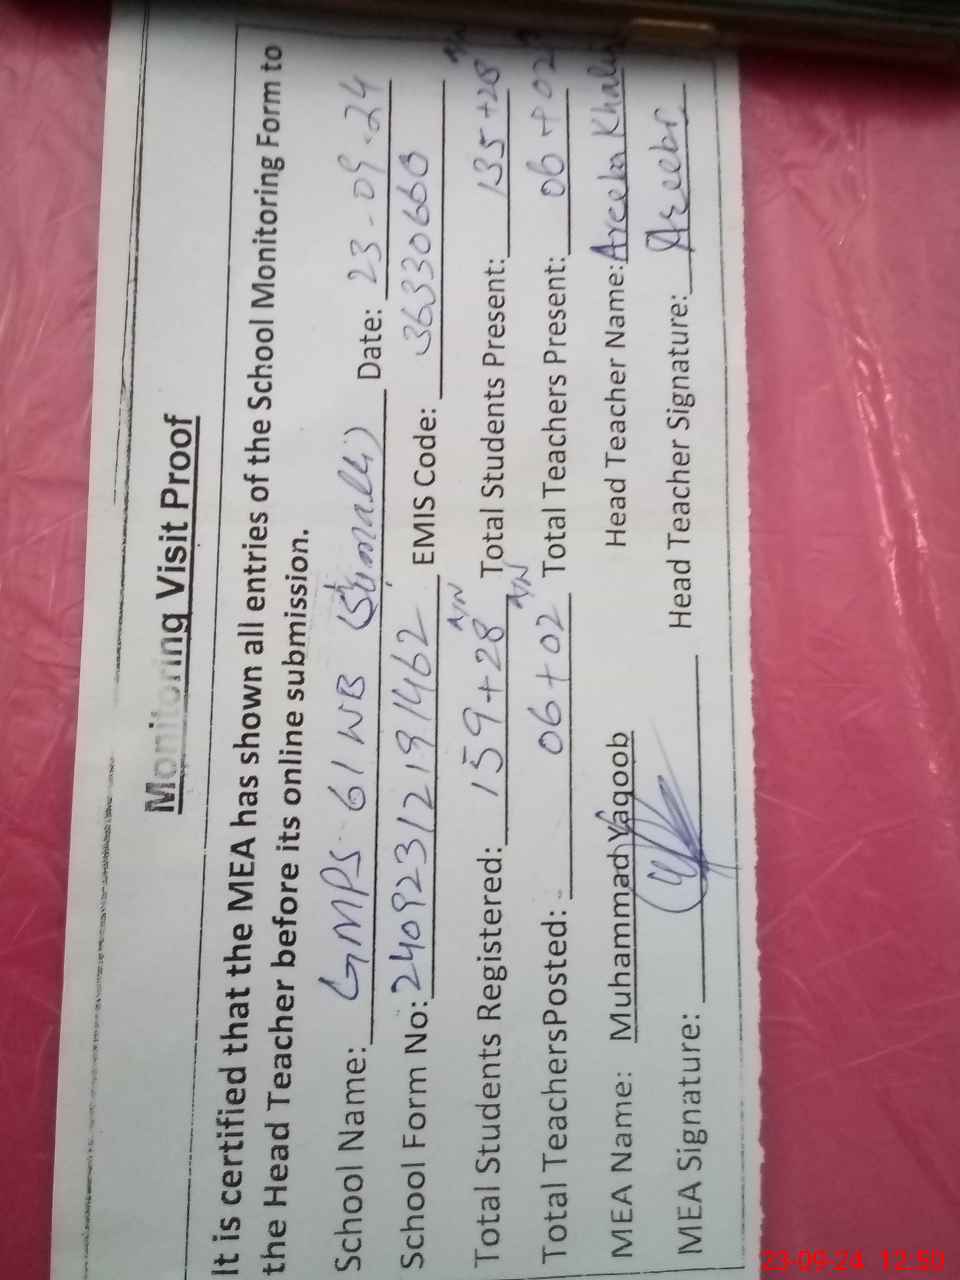 Monitoring Visit Proof
It is certified that the MEA has shown all entries of the School Monitoring Form to
the Head Teacher before its online submission.
School Name: GMPS 61 WB Date: 23-09-24
School Form No: 240923121991462 EMIS Code: 36330660
Total Students Registered: 159+28 A/N Total Students Present: 135+28 A/N
Total TeachersPosted: 06+02 A/N Total Teachers Present: 06+02
MEA Name: Muhammad Yaqoob Head Teacher Name: Areeba Khalid
MEA Signature: Head Teacher Signature: Areeba
23-09-24 12:50